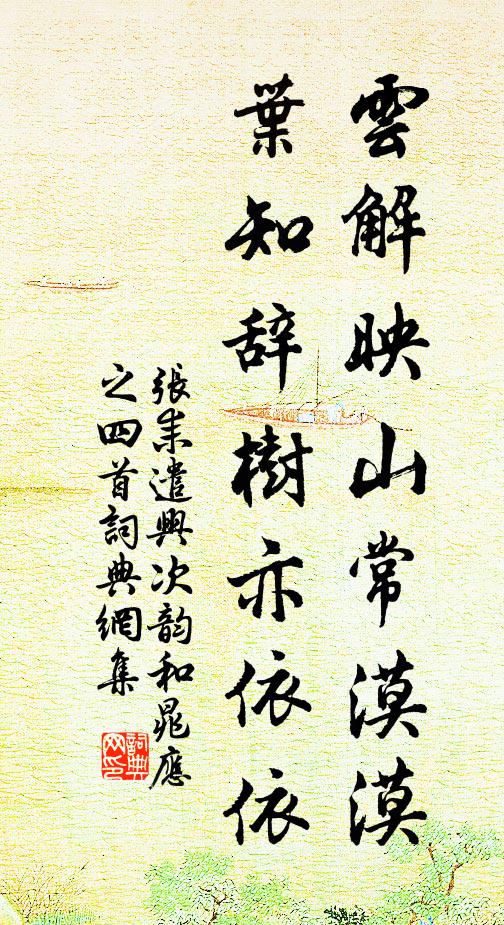 雲解映山常漠漠
葉知辞樹亦依依
張耒遣興次韵和晁應
之四首詞典網集
詞典
网印